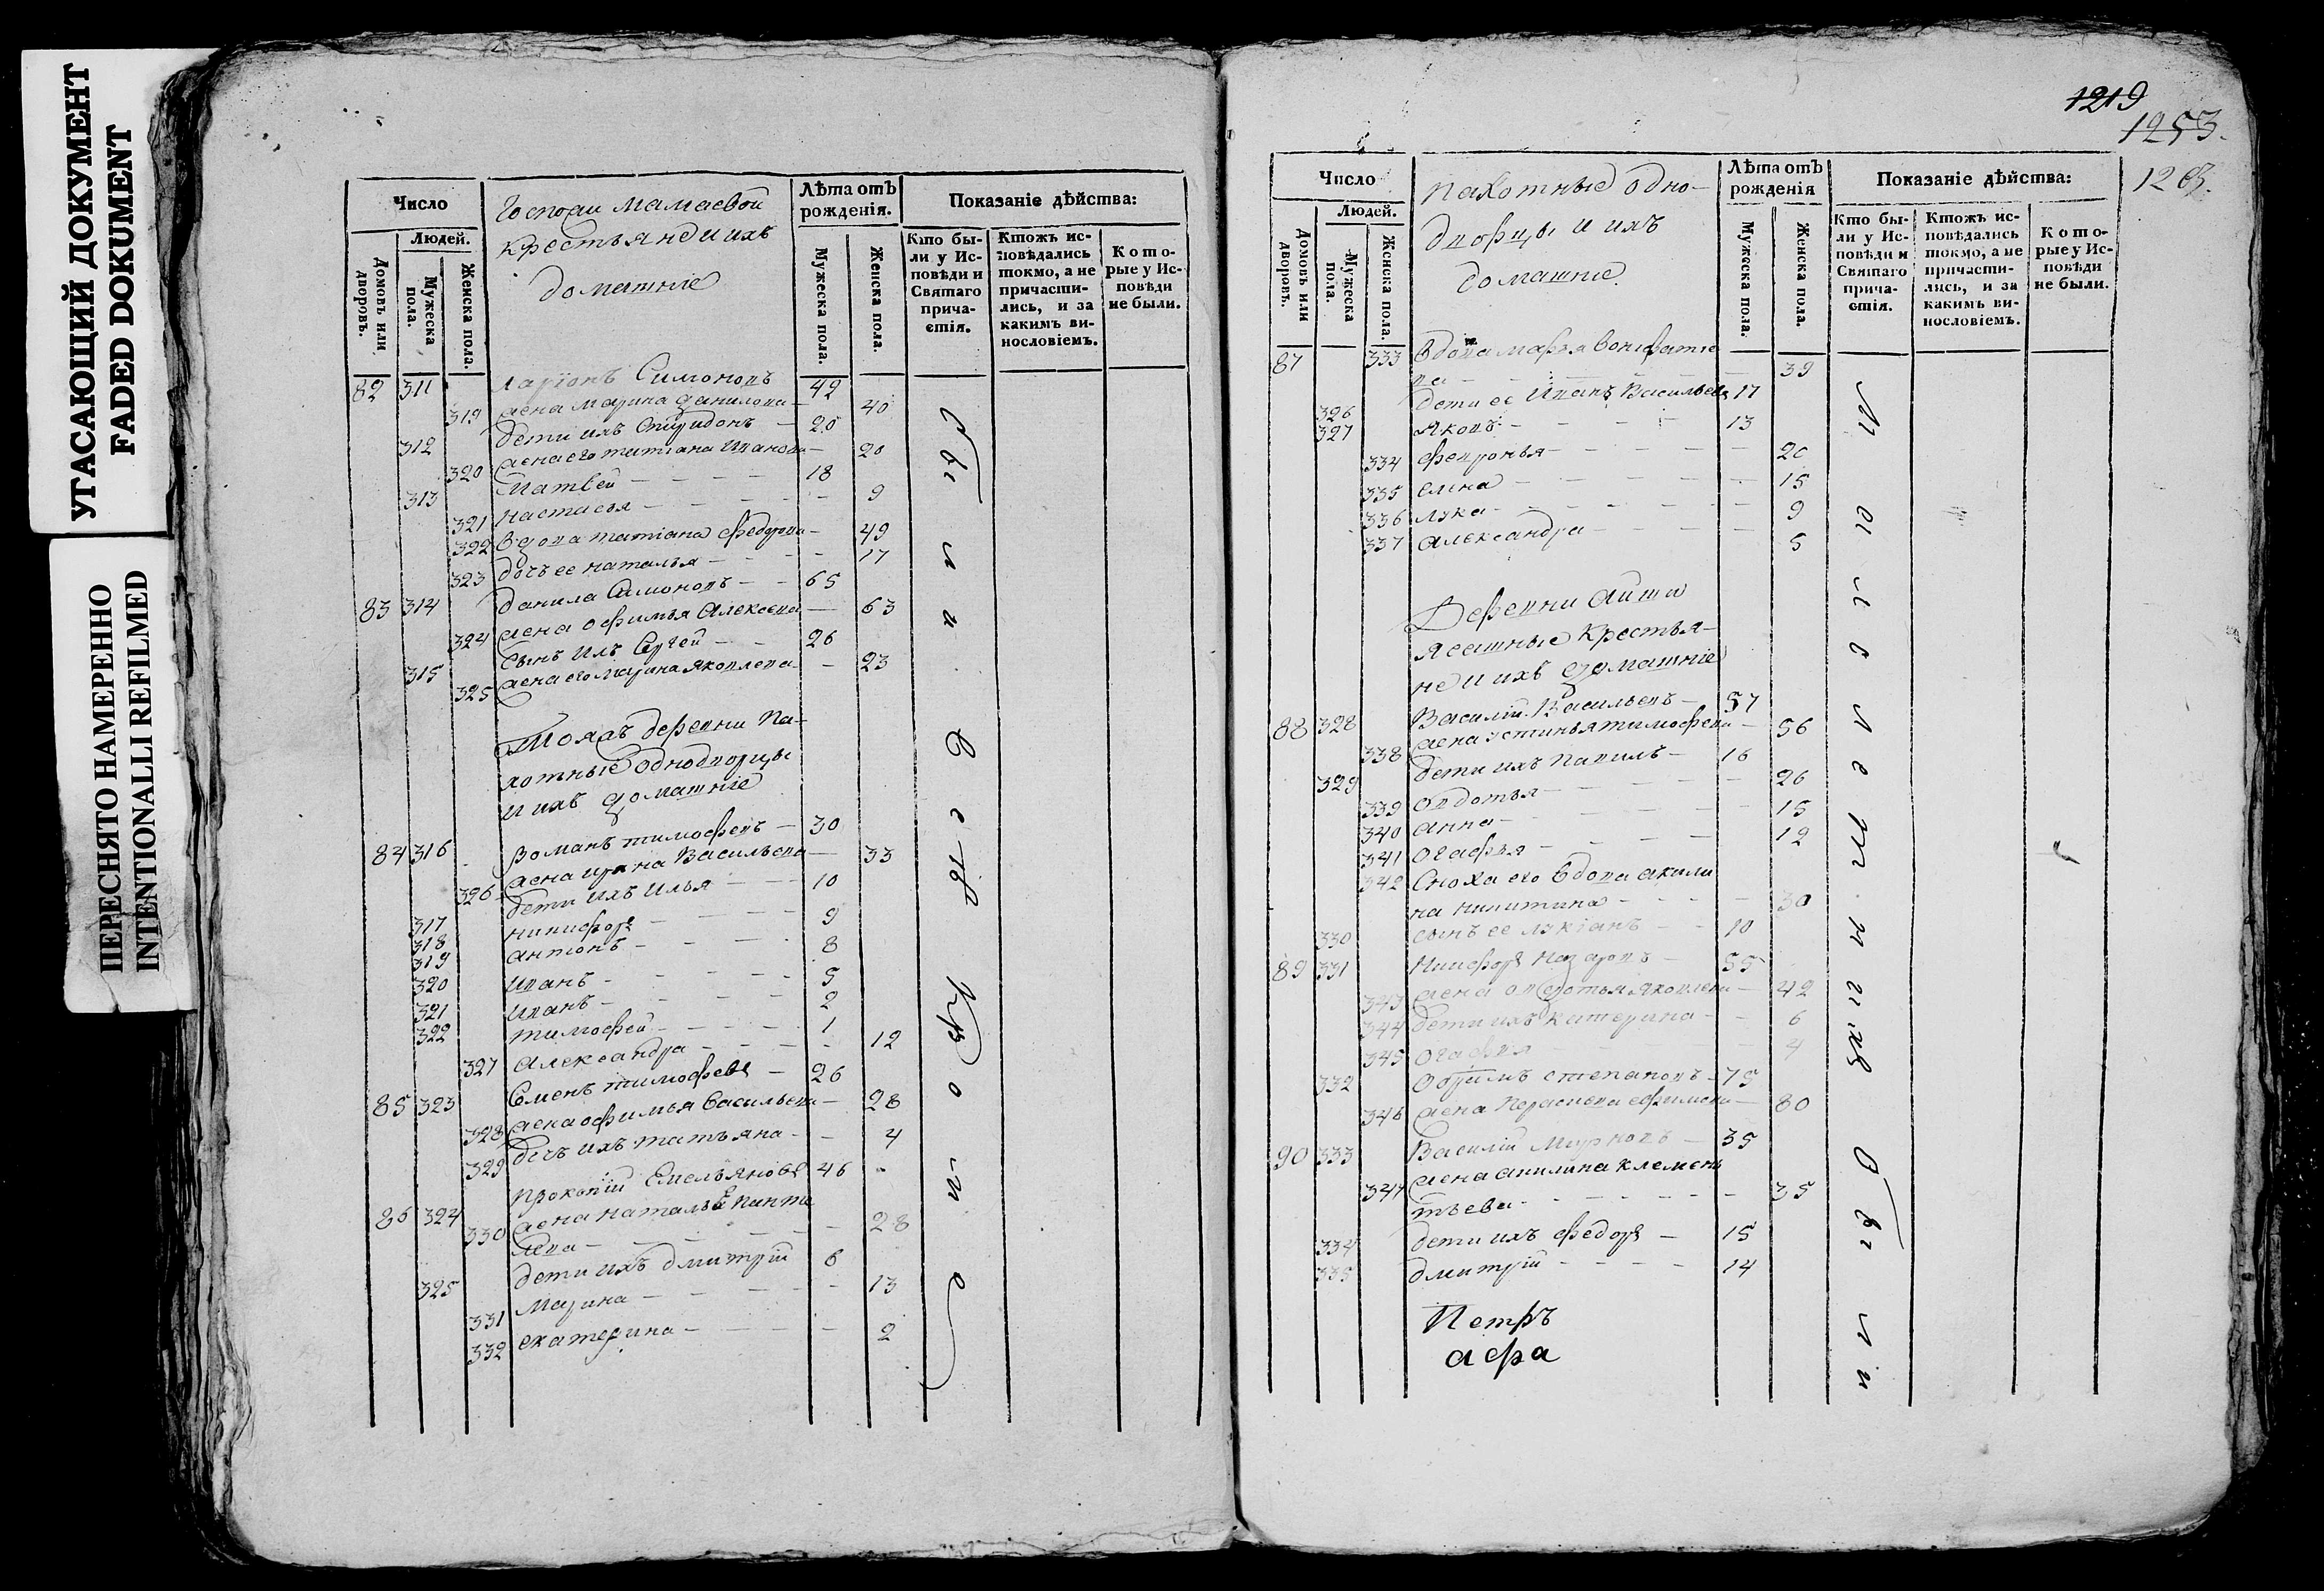 УГАСАЮЩИЙ ДОКУМЕНТ
FADED DOKUMENT
ПЕРЕСНЯТО НАМЕРЕННО
INTENTIONALLI REFILMED
Число
Людей.
Домовъ или дворовъ.
Мужеска пола.
Женска пола.
Госпожи Мамаевой
крестьяне и ихъ
домашніе
Лѣта отъ рожденія.
Мужеска пола.
Женска пола.
Показаніе дѣйства:
Кто были у Исповѣди и Святаго причастія.
Ктожъ исповѣдались токмо, а не причастились, и за какимъ винословіемъ.
Которые у Исповѣди не были.
82 311 Ларіонъ Симоновъ 42
319 жена марина данилова — 40
312 дети ихъ Спиридонъ — 20
320 жена его татіана Иванова — 20
313 Матвей — 18
321 Настасья — 9
322 вдова татіана федорова — 49
323 дочь ее наталья — 17
83 314 данила Симоновъ — 65
324 жена офимья Алексева — 63
315 сынъ ихъ Сергей — 26
325 жена его марина яковлева — 23
Тояжъ деревни па-
хотные однодворцы
и ихъ домашніе
84 316 романъ тимофевъ — 30
326 жена ирина Васильева — 33
317 дети ихъ илья — 10
318 никифоръ — 9
319 антонъ — 8
320 иванъ — 5
321 иванъ — 2
322 тимофей — 1
327 александра — 12
85 323 Семенъ тимофевъ — 26
328 жена офимья Васильева — 28
329 дочь ихъ татьяна — 4
86 324 прокопій Емельяновъ 46
330 жена наталья Панте
лева — 28
325 дети ихъ дмитрій 6
331 Марина — 13
332 екатерина — 2
Были в сѣ в Кро ш е
1219
1253.
1203.
Число
Людей.
Домовъ или дворовъ.
Мужеска пола.
Женска пола.
пахотные одно-
дворцы и ихъ
домашніе.
Лѣта отъ рожденія
Мужеска пола.
Женска пола.
Показаніе дѣйства:
Кто были у Исповѣди и Святаго причастія.
Ктожъ исповѣдались токмо, а не причастились, и за какимъ винословіемъ.
Которые у Исповѣди не были.
87 333 вдова марья вонифатье
ва — 39
326 дети ее Иванъ Васильевъ 17
327 яковъ — 13
334 февронья — 20
335 елена — 15
336 лука — 9
337 александра — 5
Деревни Айши
ясашные крестья-
не и ихъ домашніе
88 328 Василій Васильевъ — 57
338 жена устинья тимофева — 56
329 дети ихъ павилъ — 16
339 овдотья — 26
340 анна — 15
341 огафья — 12
342 Сноха его вдова акили
на никитина — 30
330 сынъ ее лукіанъ — 10
89 331 Никифоръ Назаровъ — 55
343 жена овдотья яковлева — 42
344 дети ихъ катерина — 6
345 огафья — 4
332 степановъ — 75
346 жена ефимова — 80
90 333 Василій — 35
347 жена акилина клемен
тьева — 35
334 дети ихъ федоръ — 15
335 дмитрій — 14
Петръ
афа
Малолетнихъ Были